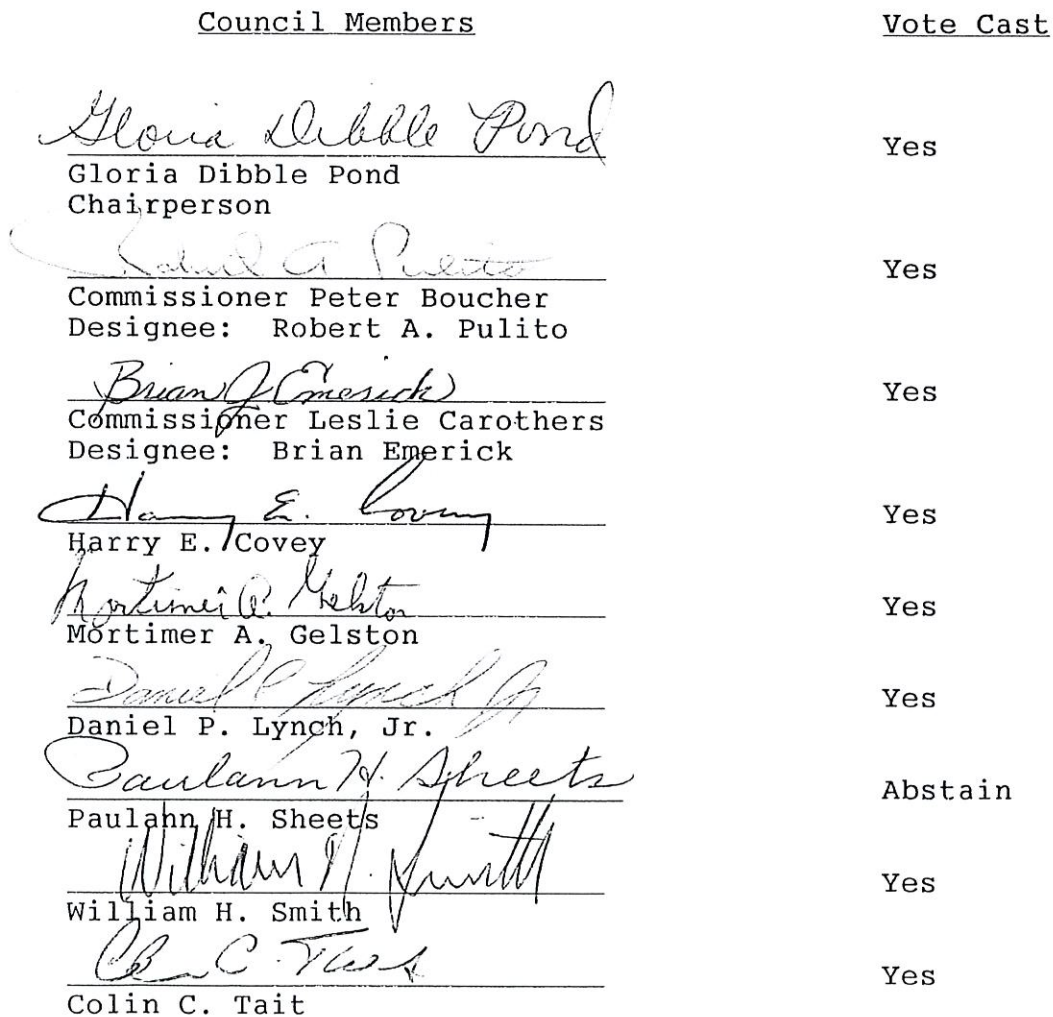 Council Members Vote Cast
Gloria Dibble Pond Yes
Gloria Dibble Pond
Chairperson
Robert A Pulito Yes
Commissioner Peter Boucher
Designee: Robert A. Pulito
Brian J Emerick Yes
Commissioner Leslie Carothers
Designee: Brian Emerick
Harry E. Covey Yes
Harry E. Covey
Mortimer A. Gelston Yes
Mortimer A. Gelston
Daniel P Lynch Jr Yes
Daniel P. Lynch, Jr.
Paulann H. Sheets Abstain
Paulann H. Sheets
William H. Smith Yes
William H. Smith
Colin C. Tait Yes
Colin C. Tait